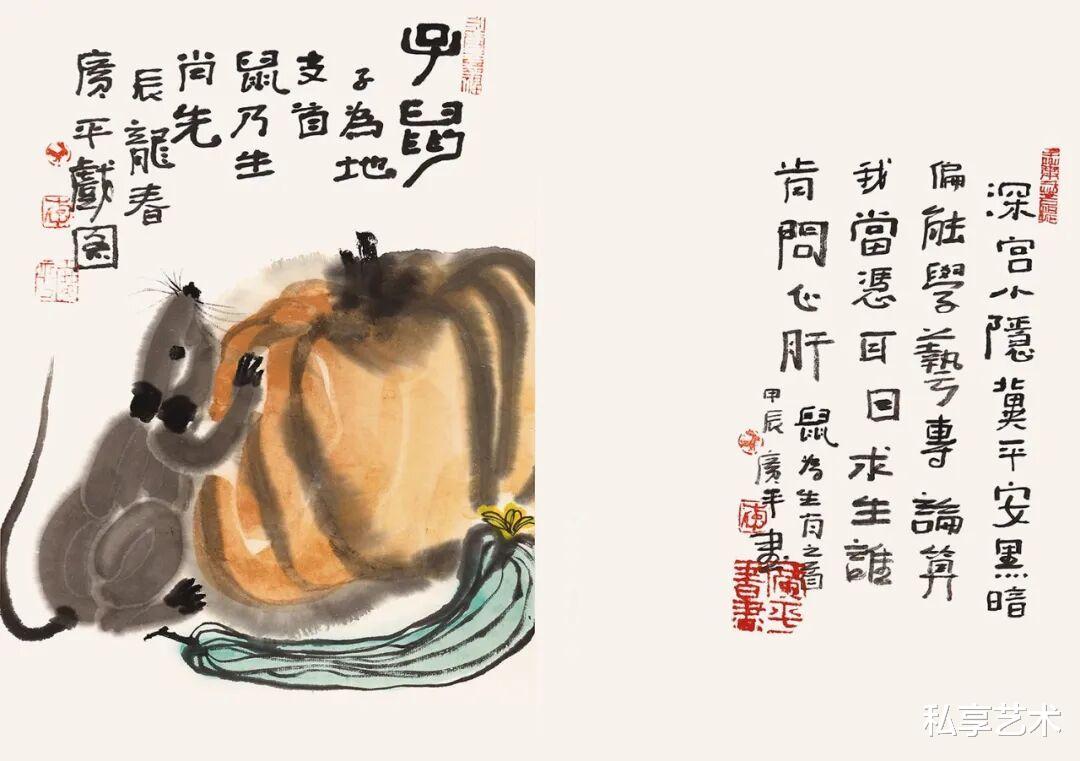 子鼠
子為地
支首
鼠乃生
肖先
辰龍春
廣平戲圖
深宮小隱冀平安黑暗
偏能學藝專論算
我當憑耳目求生誰
肯問心肝
鼠為生肖之首
甲辰廣平畫
廣平書畫
私享艺术